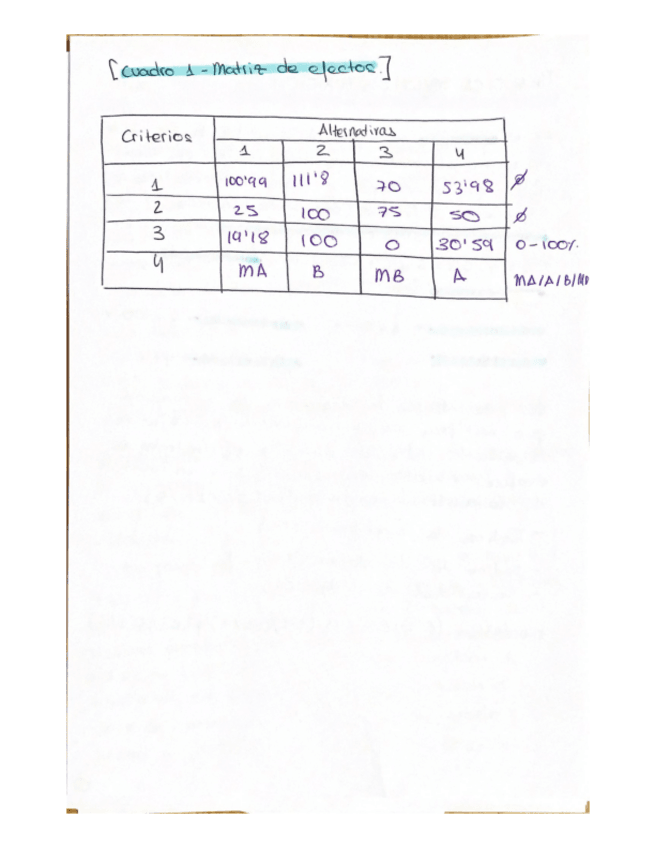 [Cuadro 1 - Matriz de efectos.]
Criterios Alternativas
1 2 3 4
1 100'99 111'8 70 53'98 ∅
2 25 100 75 50 ∅
3 19'18 100 0 30'59 0-100%
4 MA B MB A MA/A/B/MB